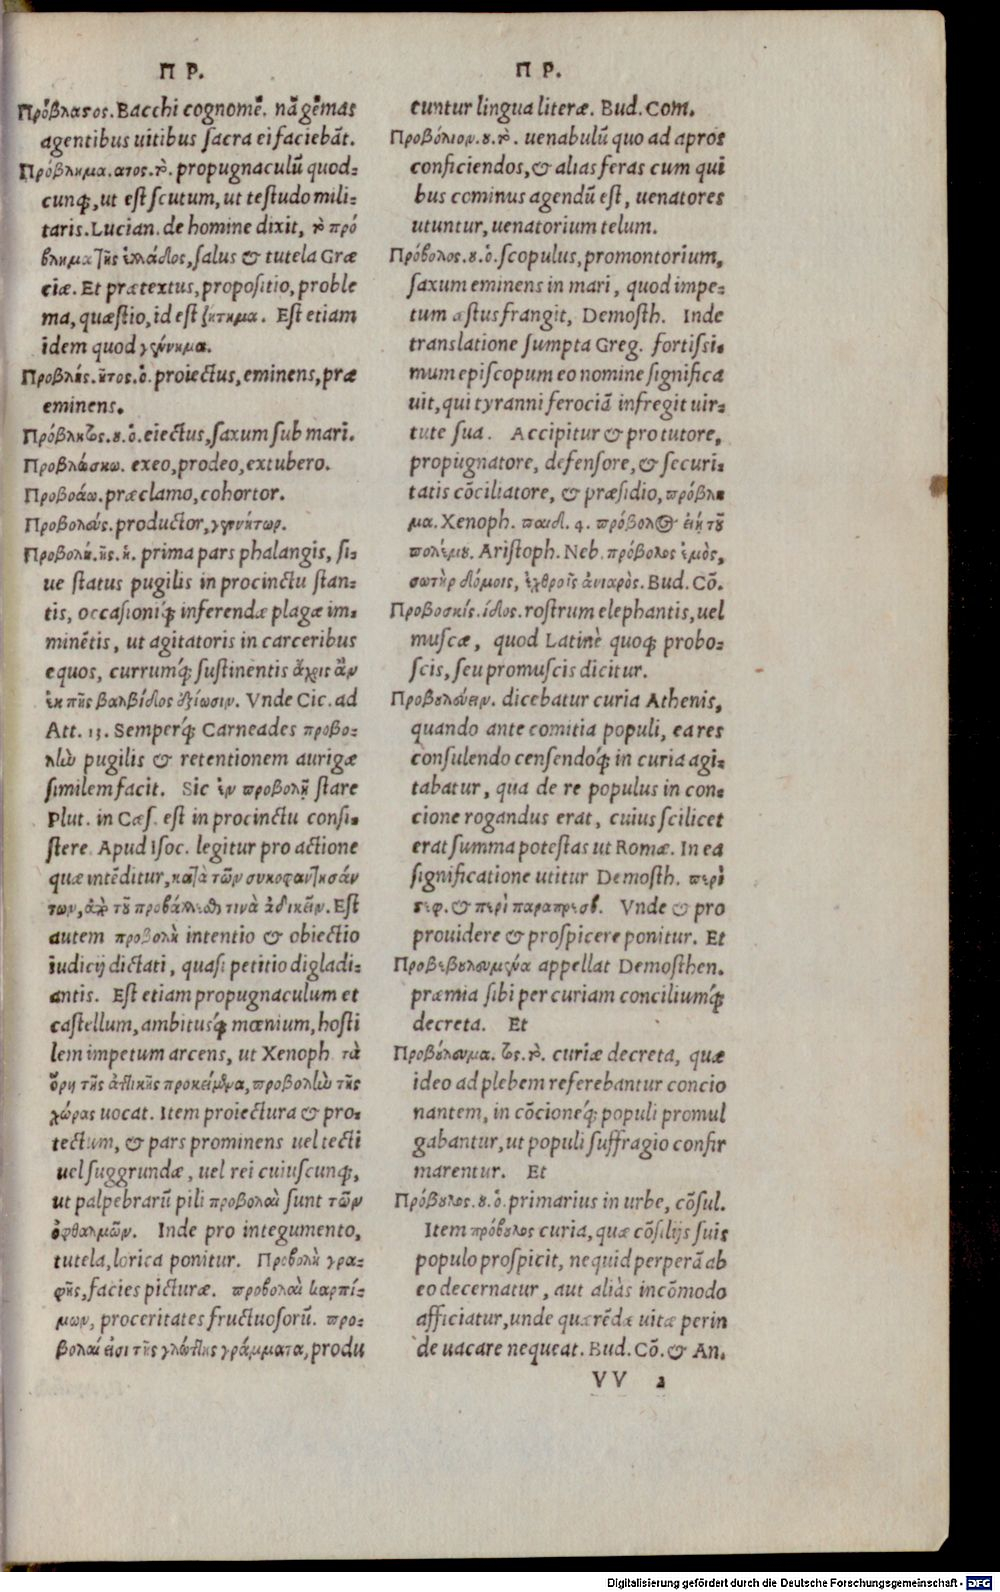 Π Ρ.
Πρόβλαστος. Bacchi cognomẽ. nã gẽmas
agentibus uitibus sacra ei faciebãt.
Πρόβλημα. ατος. τὸ. propugnaculũ quod-
cunq;, ut est scutum, ut testudo mili-
taris. Lucian. de homine dixit, τὸ πρό
βλημα τῆς ἑλλάδος, salus & tutela Græ
ciæ. Et prætextus, propositio, proble
ma, quæstio, id est ζήτημα. Est etiam
idem quod γέννημα.
Προβλής. ῆτος. ὁ. proiectus, eminens, præ
eminens.
Πρόβλητος. ου. ὁ. eiectus, saxum sub mari.
Προβλώσκω. exeo, prodeo, extubero.
Προβοάω. præclamo, cohortor.
Προβολεύς. productor, γεννήτωρ.
Προβολή. ῆς. ἡ. prima pars phalangis, si-
ue status pugilis in procinctu stan-
tis, occasioniq́; inferendæ plagæ im-
minẽtis, ut agitatoris in carceribus
equos, currumq́; sustinentis ἄχρις ἂν
ἐκ τῆς βαλβίδος ἐξίωσιν. Vnde Cic. ad
Att. 13. Semperq́; Carneades προβο-
λὴν pugilis & retentionem aurigæ
similem facit. Sic ἐν προβολῇ stare
Plut. in Cæs. est in procinctu consi-
stere. Apud Isoc. legitur pro actione
quæ intẽditur, κατὰ τῶν συκοφαντησάν
των, ἀντὶ τοῦ προβάλλεσθαί τινὰ ἀδικεῖν. Est
autem προβολὴ intentio & obiectio
iudicij dictati, quasi petitio digladi-
antis. Est etiam propugnaculum et
castellum, ambitusq́; mœnium, hosti
lem impetum arcens, ut Xenoph. τὰ
ὄρη τῆς ἀττικῆς προκείμενα, προβολὴν τῆς
χώρας uocat. Item proiectura & pro-
tectum, & pars prominens uel tecti
uel suggrundæ, uel rei cuiuscunq;,
ut palpebrarũ pili προβολαὶ sunt τῶν
ὀφθαλμῶν. Inde pro integumento,
tutela, lorica ponitur. Προβολὴ γρα-
φῆς, facies picturæ. προβολαὶ καρπί-
μων, proceritates fructuosorũ. προ-
βολαί εἰσι τῆς γλώττης γράμματα, produ
Π Ρ.
cuntur lingua literæ. Bud. Com.
Προβόλιον. ου. τὸ. uenabulũ quo ad apros
conficiendos, & alias feras cum qui
bus cominus agendũ est, uenatores
utuntur, uenatorium telum.
Πρόβολος. ου. ὁ. scopulus, promontorium,
saxum eminens in mari, quod impe-
tum æstus frangit, Demosth. Inde
translatione sumpta Greg. fortissi-
mum episcopum eo nomine significa
uit, qui tyranni ferociã infregit uir-
tute sua. Accipitur & pro tutore,
propugnatore, defensore, & securi-
tatis cõciliatore, & præsidio, πρόβλη
μα. Xenoph. παιδ. 4. πρόβολος εἴη τοῦ
πολέμου. Aristoph. Neb. πρόβολος ἐμὸς,
σωτὴρ δόμοις, ἐχθροῖς ἀνιαρὸς. Bud. Cõ.
Προβοσκίς. ίδος. rostrum elephantis, uel
muscæ, quod Latinè quoq; probo-
scis, seu promuscis dicitur.
Προβουλεύειν. dicebatur curia Athenis,
quando ante comitia populi, ea res
consulendo censendoq́; in curia agi-
tabatur, qua de re populus in con-
cione rogandus erat, cuius scilicet
erat summa potestas ut Romæ. In ea
significatione utitur Demosth. περὶ
στεφ. & περὶ παραπρεσβ. Vnde & pro
prouidere & prospicere ponitur. Et
Προβεβουλευμένα appellat Demosthen.
præmia sibi per curiam conciliumq́;
decreta. Et
Προβούλευμα. τος. τὸ. curiæ decreta, quæ
ideo ad plebem referebantur concio
nantem, in cõcioneq́; populi promul
gabantur, ut populi suffragio confir
marentur. Et
Πρόβουλος. ου. ὁ. primarius in urbe, cõsul.
Item πρόβουλος curia, quæ cõsilijs suis
populo prospicit, ne quid perperã ab
eo decernatur, aut aliàs incõmodo
afficiatur, unde quærẽdæ uitæ perin
de uacare nequeat. Bud. Cõ. & An.
VV 2
Digitalisierung gefördert durch die Deutsche Forschungsgemeinschaft - DFG